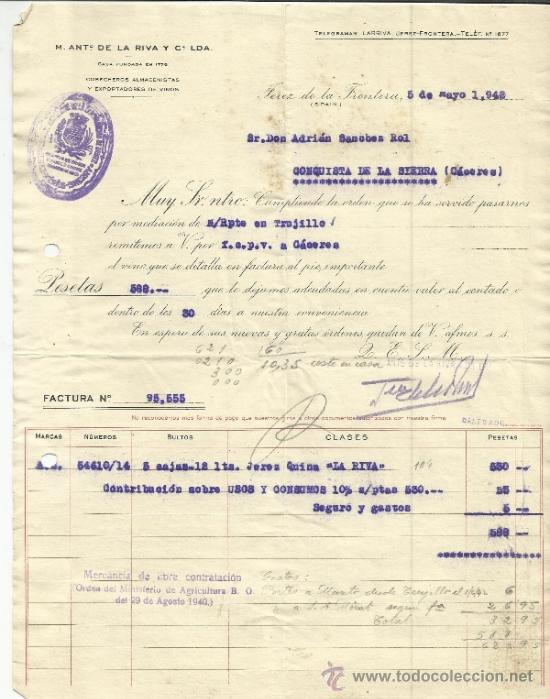 TELEGRAMAS LARRIVA, JEREZ-FRONTERA.-TELÉF. Nº 1677
M. ANTº DE LA RIVA Y Cª LDA.
CASA FUNDADA EN 1776
COSECHEROS ALMACENISTAS
Y EXPORTADORES DE VINOS
Jerez de la Frontera, 5 de mayo 1.942
(SPAIN)
Sr.Don Adrián Sanchez Rol
CONQUISTA DE LA SIERRA (Cáceres)
Muy Sr. ntro: Cumpliendo la orden que se ha servido pasarnos
por mediación de N/Rpte en Trujillo
remitimos a V. por f.c.p.v. a Cáceres
el vino que se detalla en factura al pie, importante
Pesetas 588.-- que le dejamos adeudadas en cuenta valor al contado o
dentro de los 30 días a nuestra conveniencia.
En espera de sus nuevas y gratas órdenes, quedan de V. afmos s. s.
Q. E. S. M.
621 160
0210 10,35 coste en casa
300
000
FACTURA Nº 95,555
No reconocemos más forma de pago que nuestros giros u otros documentos autorizados por nuestra firma
MARCAS NÚMEROS BULTOS CLASES PESETAS
A.S. 54610/14 5 cajas-12 lts. Jerez Quina "LA RIVA" 530 --
Contribución sobre USOS Y CONSUMOS 10% s/ptas 530.-- 53 --
Seguro y gastos 5 --
588 --
Mercancía de libre contratación
(Orden del Ministerio de Agricultura B. O.
del 29 de Agosto 1940.)
Gastos:
Porte a Manto desde Trujillo 6
26 95
Total 32 95
588
620 95
todocoleccion
www.todocoleccion.net